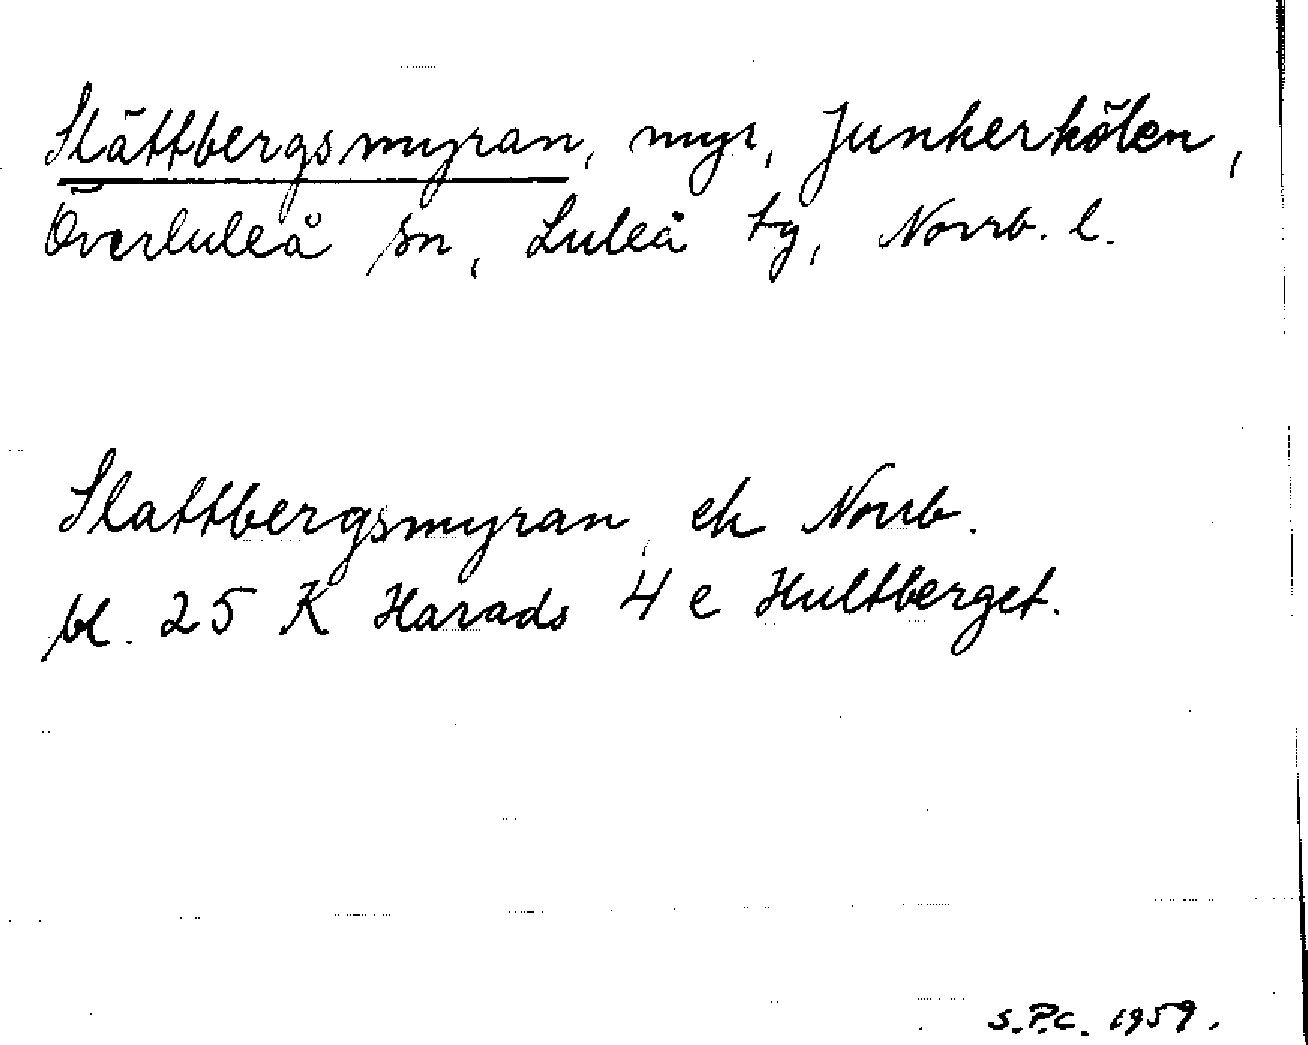 Slättbergsmyran, myr, Junkerkölen,
Överluleå sn, Luleå tg, Norrb. l.
Slattbergsmyran, ek Norrb.
bl. 25 K Harads 4 e Hultberget.
S.P.C. 1959.